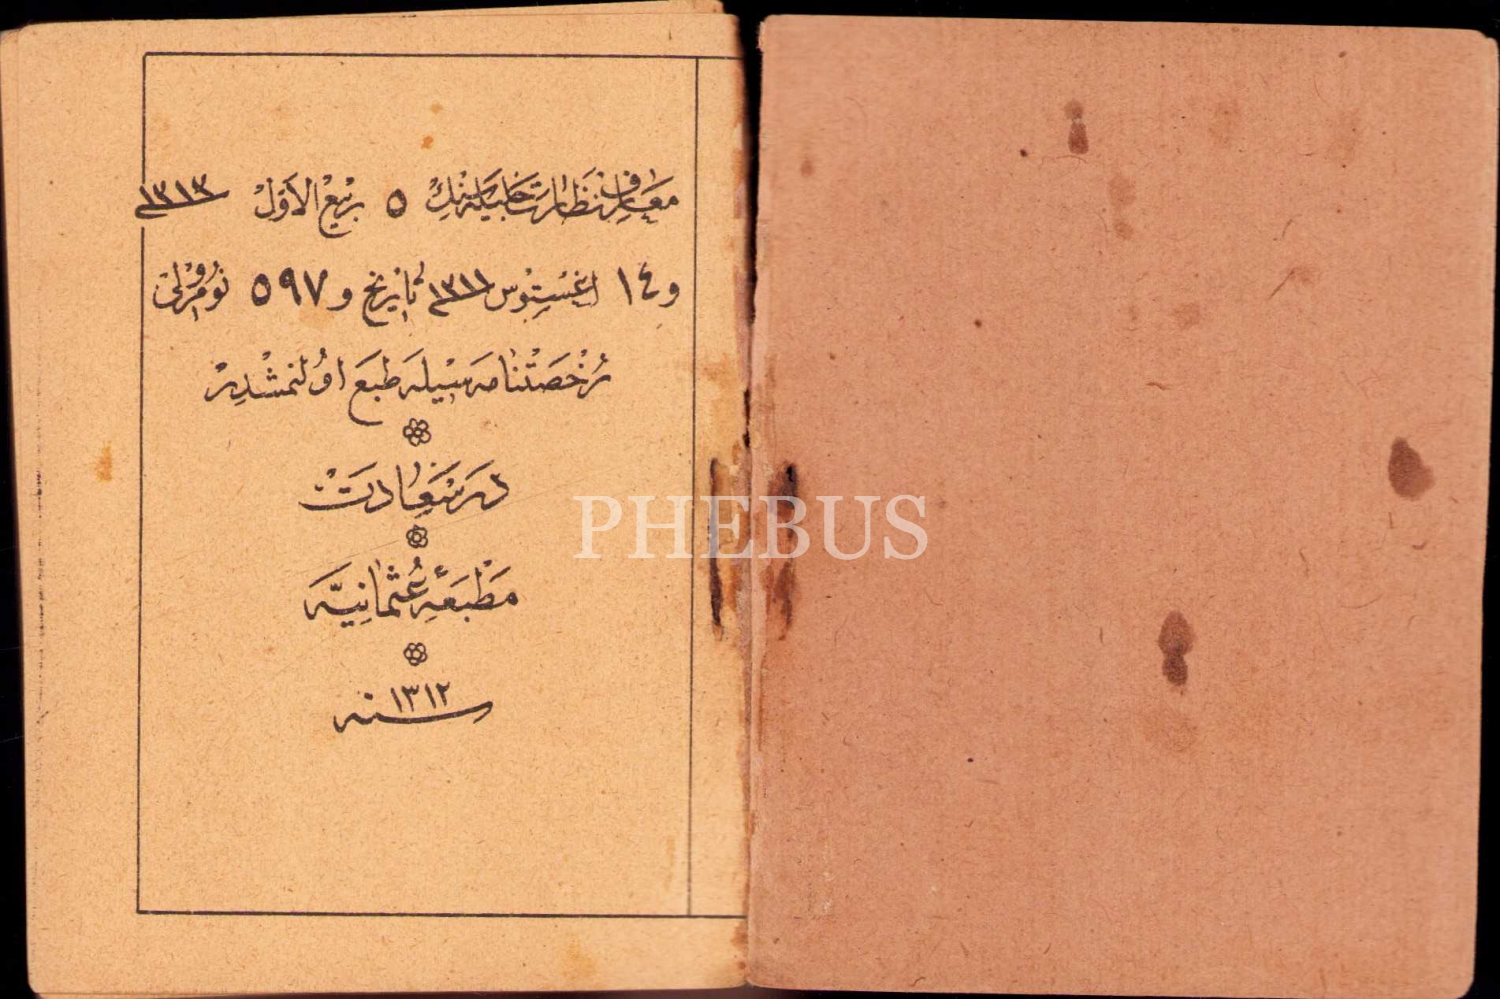 معارف نظارت جلیله‌سنك ٥ ربیع الاول ١٣١٣
و ١٤ اغستوس ١٣١١ تاریخ و ٥٩٧ نومرولی
رخصتنامه سیله طبع اولنمشدر
درسعادت
مطبعۀ عثمانیه
سنه ١٣١٢
PHEBUS